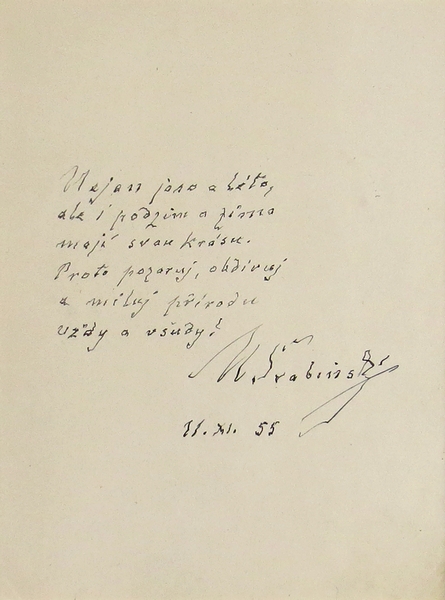 Nejen jaro a léto,
ale i podzim a zima
mají svou krásu.
Proto pozoruj, obdivuj
a miluj přírodu
vždy a všudy!
M. Švabinský
11. XI. 55